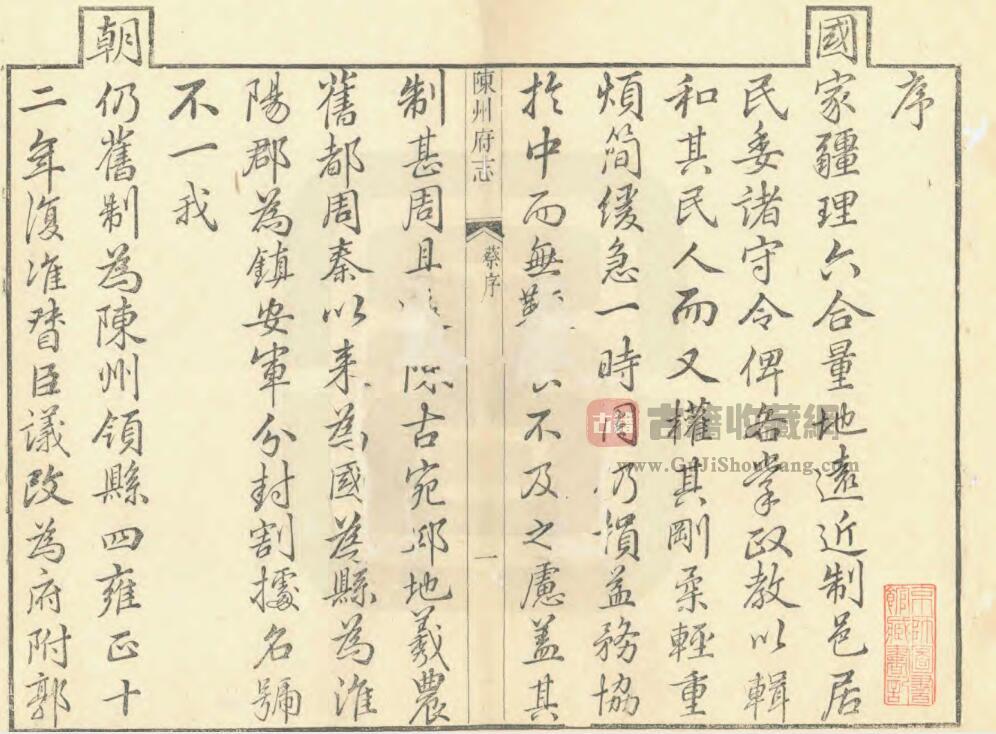 序
國家疆理六合量地遠近制邑居
民委諸守令俾各掌政教以輯
和其民人而又權其剛柔輕重
煩簡緩急一時因乃損益務協
於中而無 不及之慮蓋其
陳州府志 蔡序 一
制甚周且 陳古宛邱地羲農
舊都周秦以来為國為縣為淮
陽郡為鎮安軍分封割據名號
不一我
朝仍舊制為陳州領縣四雍正十
二年復准督臣議改為府附郭
古籍 古籍收藏網
www.GuJiShouCang.com
京師圖書館藏書記